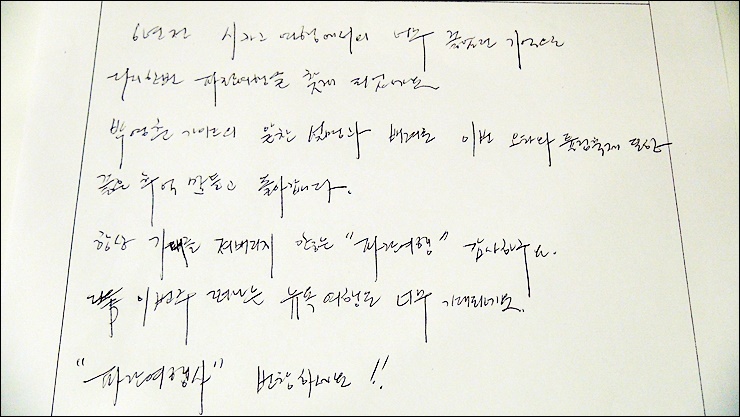 6년전 시카고 여행에서의 너무 좋았던 기억으로
다시한번 파란여행을 찾게 되었네요
박영훈 가이드의 알찬 설명과 배려로 이번 오타와 튤립축제 또한
좋은 추억 만들고 돌아갑니다.
항상 기대를 져버리지 않는 "파란여행" 감사하구요.
이번주 떠나는 뉴욕 여행도 너무 기대되네요.
"파란여행사" 번창하세요 !!